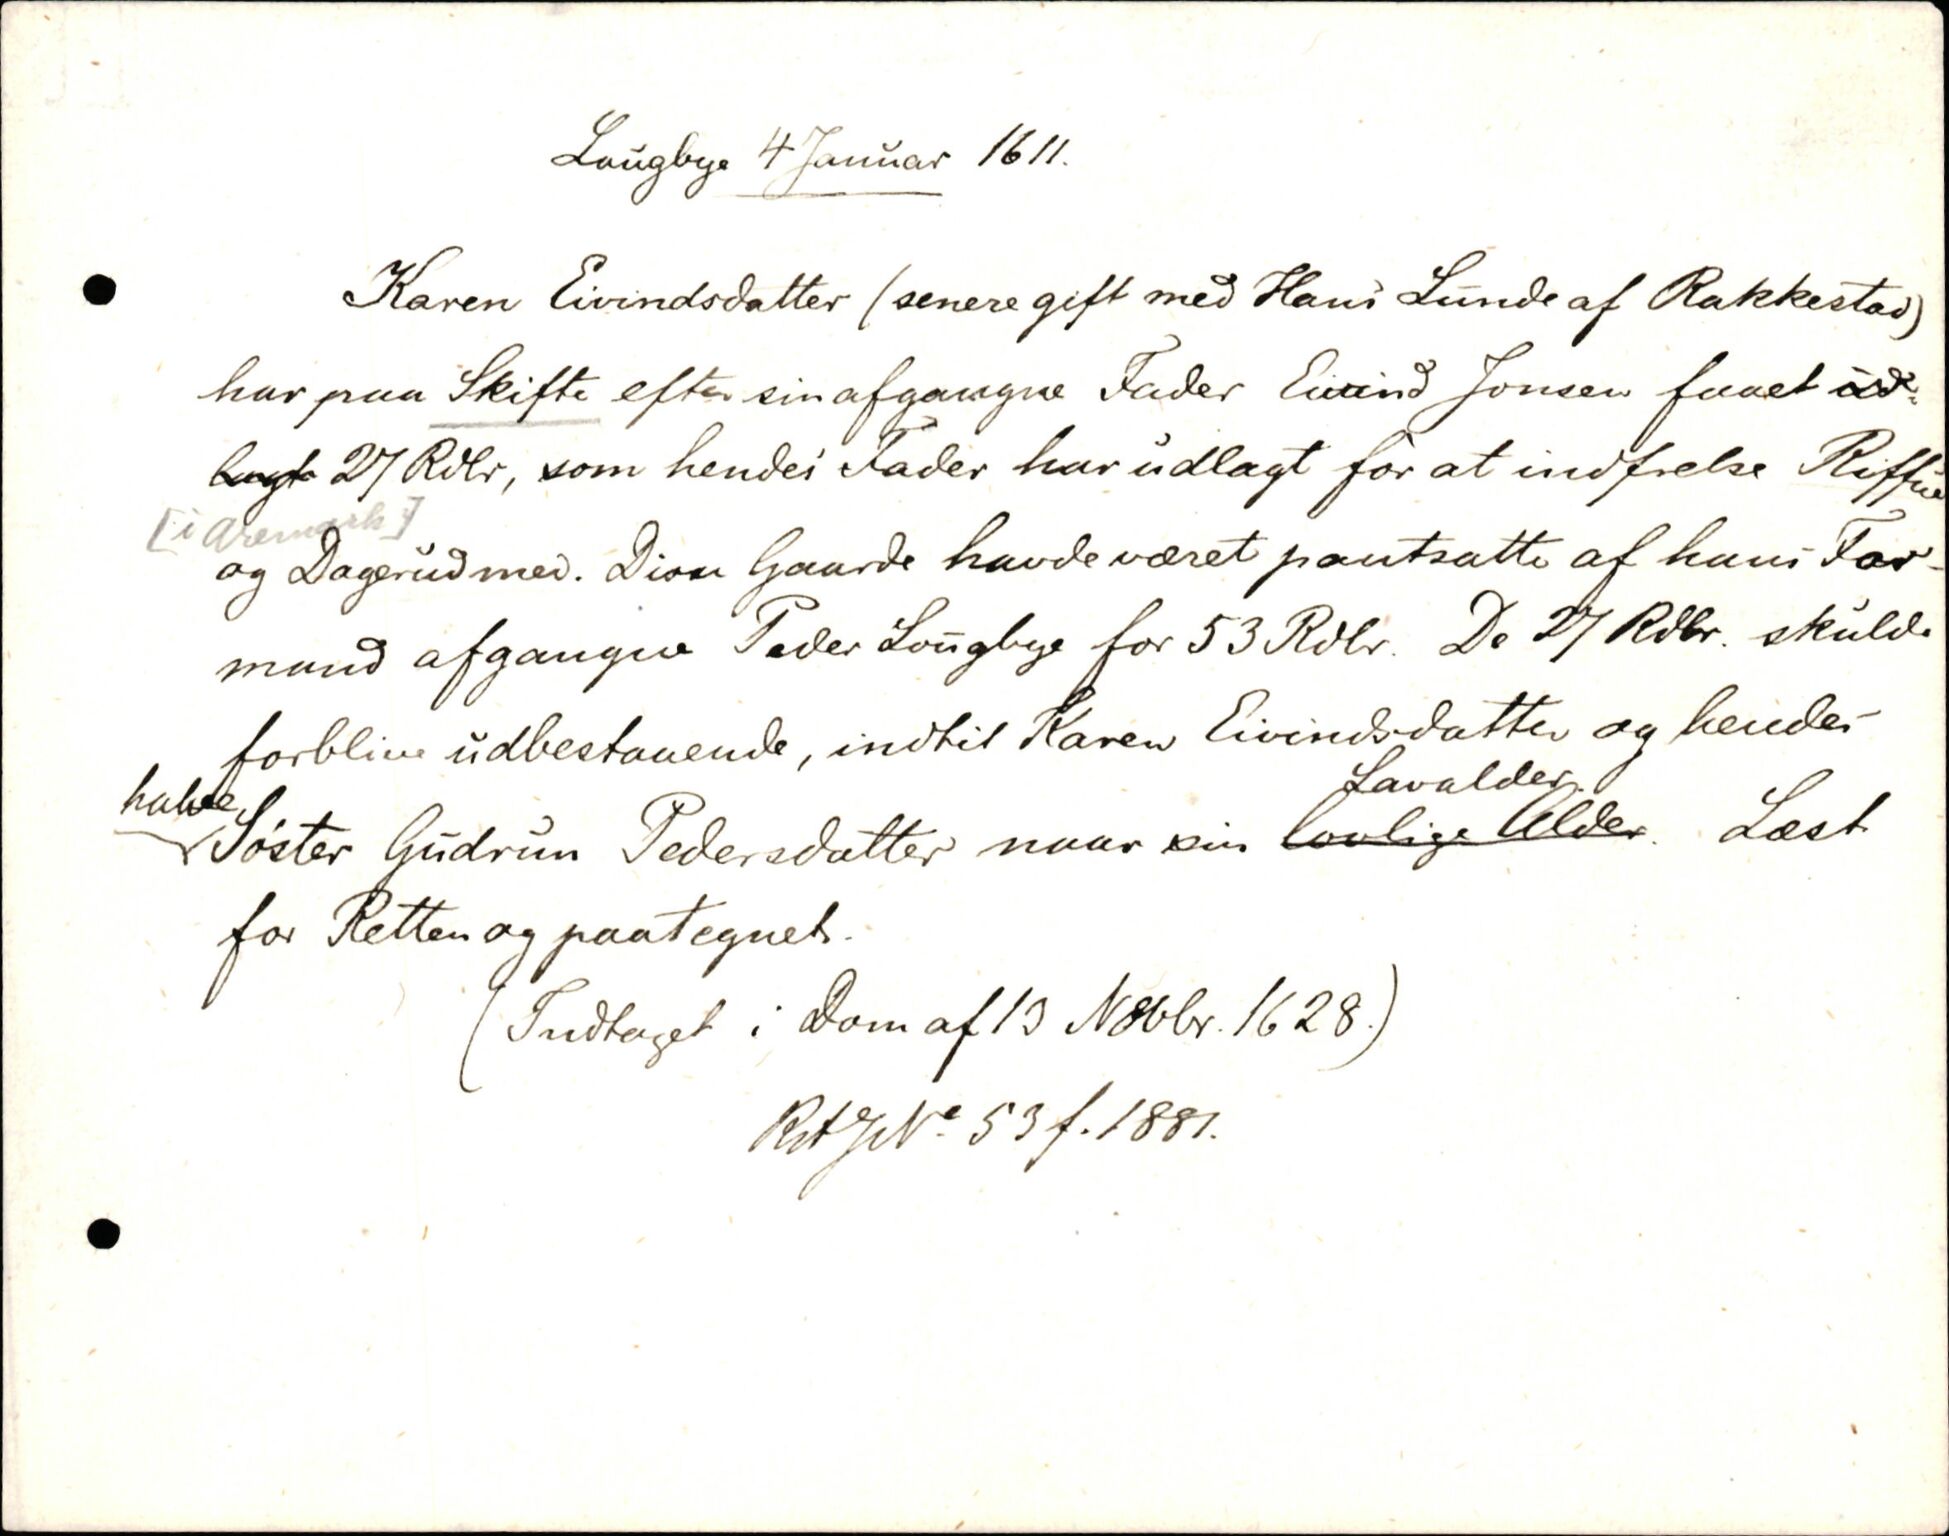 Lougbye 4 Januar 1611.
Karen Eivindsdatter (senere gift med Hans Lunde af Rakkestad)
har paa Skifte efter sin afgangne Fader Eivind Jonsen faaet ud-
lagt 27 Rdlr, som hendes Fader har udlagt for at indfrelse Riffue
[i Aremark]
og Dagerud med. Disse Gaarde havde været pantsatte af hans For-
mand afgangne Peder Lougbye for 53 Rdlr. De 27 Rdlr. skulde
forblive udbestaaende, indtil Karen Eivindsdatter og hendes
halve Lavalder.
Söster Gudrun Pedersdatter naar sin lovlige Alder. Læst
for Retten og paategnet.
(Indtaget i Dom af 13 Novbr. 1628.)
No 53 f. 1881.